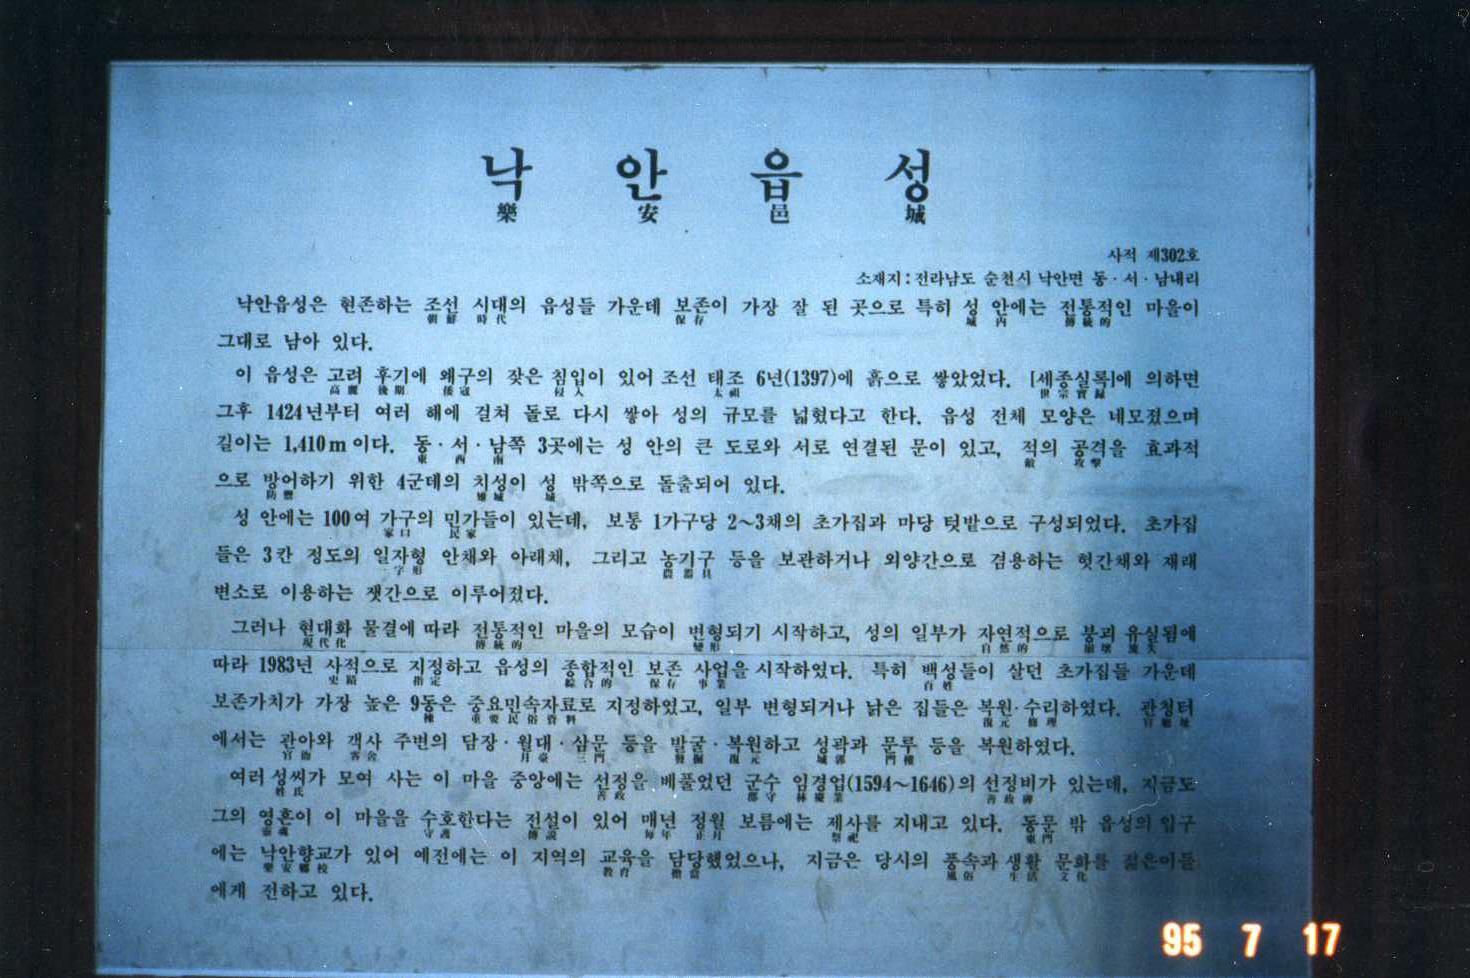 낙 안 읍 성
樂 安 邑 城
사적 제302호
소재지 : 전라남도 순천시 낙안면 동·서·남내리
낙안읍성은 현존하는 조선 시대의 읍성들 가운데 보존이 가장 잘 된 곳으로 특히 성 안에는 전통적인 마을이
朝鮮 時代 保存 城 內 傳統的
그대로 남아 있다.
이 읍성은 고려 후기에 왜구의 잦은 침입이 있어 조선 태조 6년(1397)에 흙으로 쌓았었다. [세종실록]에 의하면
高麗 後期 倭寇 侵入 太祖 世宗實錄
그후 1424년부터 여러 해에 걸쳐 돌로 다시 쌓아 성의 규모를 넓혔다고 한다. 읍성 전체 모양은 네모졌으며
길이는 1,410m이다. 동·서·남쪽 3곳에는 성 안의 큰 도로와 서로 연결된 문이 있고, 적의 공격을 효과적
東 西 南 敵 攻擊
으로 방어하기 위한 4군데의 치성이 성 밖쪽으로 돌출되어 있다.
防禦 雉城 城
성 안에는 100여 가구의 민가들이 있는데, 보통 1가구당 2~3채의 초가집과 마당 텃밭으로 구성되었다. 초가집
家口 民家
들은 3칸 정도의 일자형 안채와 아래채, 그리고 농기구 등을 보관하거나 외양간으로 겸용하는 헛간채와 재래
字形 農器具
변소로 이용하는 잿간으로 이루어졌다.
그러나 현대화 물결에 따라 전통적인 마을의 모습이 변형되기 시작하고, 성의 일부가 자연적으로 붕괴 유실됨에
現代化 傳統的 變形 自然的 崩壞 流失
따라 1983년 사적으로 지정하고 읍성의 종합적인 보존 사업을 시작하였다. 특히 백성들이 살던 초가집들 가운데
史蹟 指定 綜合的 保存 事業 百姓
보존가치가 가장 높은 9동은 중요민속자료로 지정하였고, 일부 변형되거나 낡은 집들은 복원·수리하였다. 관청터
棟 重要民俗資料 復元 修理 官廳址
에서는 관아와 객사 주변의 담장·월대·삼문 등을 발굴·복원하고 성곽과 문루 등을 복원하였다.
官衙 客舍 月臺 三門 發掘 復元 城郭 門樓
여러 성씨가 모여 사는 이 마을 중앙에는 선정을 베풀었던 군수 임경업(1594~1646)의 선정비가 있는데, 지금도
姓氏 善政 郡守 林慶業 善政碑
그의 영혼이 이 마을을 수호한다는 전설이 있어 매년 정월 보름에는 제사를 지내고 있다. 동문 밖 읍성의 입구
靈魂 守護 傳說 每年 正月 祭祀 東門
에는 낙안향교가 있어 예전에는 이 지역의 교육을 담당했었으나, 지금은 당시의 풍속과 생활 문화를 젊은이들
樂安鄕校 敎育 擔當 風俗 生活 文化
에게 전하고 있다.
95 7 17